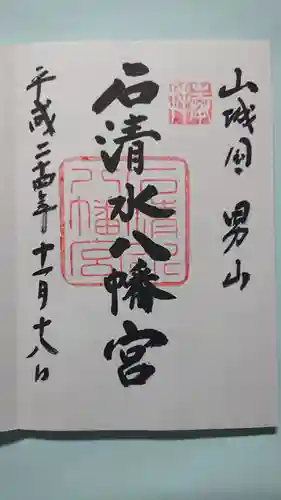 山城国 男山
奉拝
石清水八幡宮
石清水八幡宮
平成二十四年十一月十八日